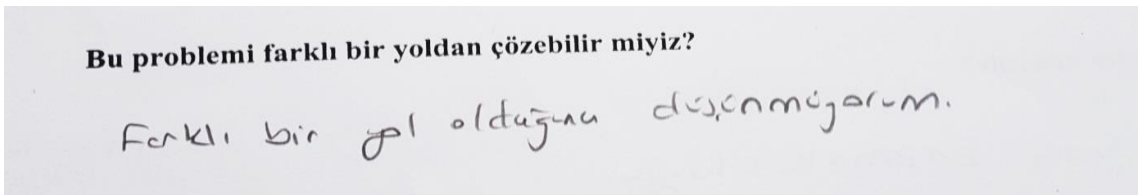 Bu problemi farklı bir yoldan çözebilir miyiz?
Farklı bir yol olduğunu düşünmüyorum.